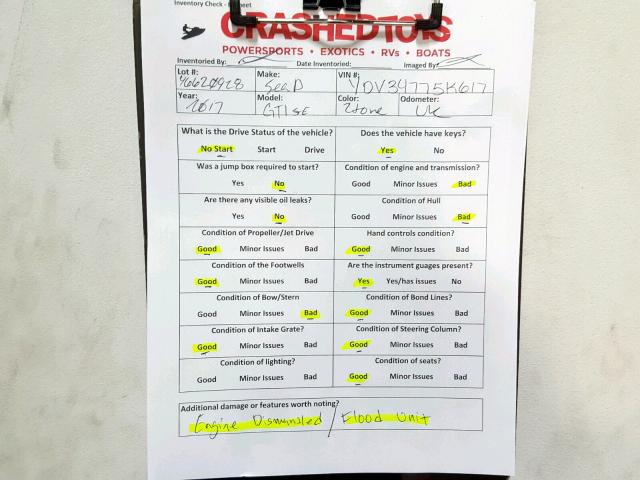 Inventory Check - Sheet
CRASHEDTOYS
POWERSPORTS • EXOTICS • RVs • BOATS
Inventoried By: Date Inventoried: Imaged By:
Lot #: 46620928 Make: SeaD VIN #: YDV34775K617
Year: 2017 Model: GTI SE Color: 2tone Odometer: UK
What is the Drive Status of the vehicle? Does the vehicle have keys?
No Start Start Drive Yes No
Was a jump box required to start? Condition of engine and transmission?
Yes No Good Minor Issues Bad
Are there any visible oil leaks? Condition of Hull
Yes No Good Minor Issues Bad
Condition of Propeller/Jet Drive Hand controls condition?
Good Minor Issues Bad Good Minor Issues Bad
Condition of the Footwells Are the instrument guages present?
Good Minor Issues Bad Yes Yes/has issues No
Condition of Bow/Stern Condition of Bond Lines?
Good Minor Issues Bad Good Minor Issues Bad
Condition of Intake Grate? Condition of Steering Column?
Good Minor Issues Bad Good Minor Issues Bad
Condition of lighting? Condition of seats?
Good Minor Issues Bad Good Minor Issues Bad
Additional damage or features worth noting?
Engine Dismantled / Flood Unit